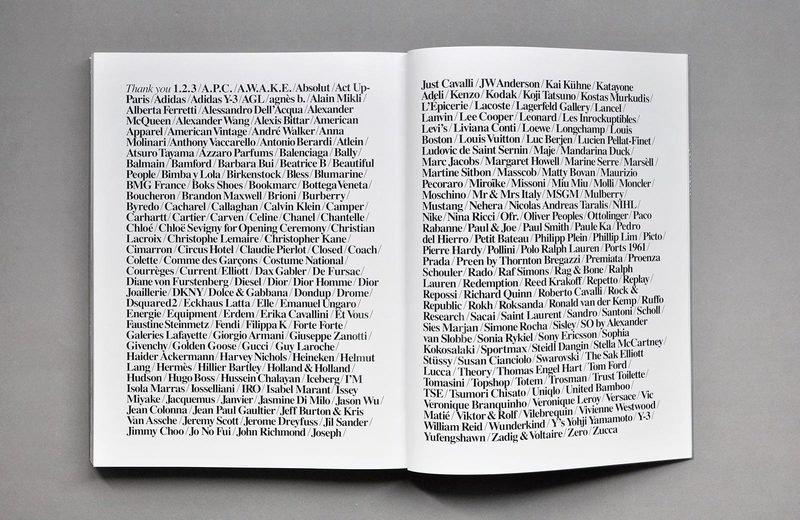 Thank you 1.2.3 / A.P.C. / A.W.A.K.E. / Absolut / Act Up-
Paris / Adidas / Adidas Y-3 / AGL / agnès b. / Alain Mikli /
Alberta Ferretti / Alessandro Dell'Acqua / Alexander
McQueen / Alexander Wang / Alexis Bittar / American
Apparel / American Vintage / André Walker / Anna
Molinari / Anthony Vaccarello / Antonio Berardi / Atlein /
Atsuro Tayama / Azzaro Parfums / Balenciaga / Bally /
Balmain / Bamford / Barbara Bui / Beatrice B / Beautiful
People / Bimba y Lola / Birkenstock / Bless / Blumarine /
BMG France / Boks Shoes / Bookmarc / Bottega Veneta /
Boucheron / Brandon Maxwell / Brioni / Burberry /
Byredo / Cacharel / Callaghan / Calvin Klein / Camper /
Carhartt / Cartier / Carven / Celine / Chanel / Chantelle /
Chloé / Chloë Sevigny for Opening Ceremony / Christian
Lacroix / Christophe Lemaire / Christopher Kane /
Cimarron / Circus Hotel / Claudie Pierlot / Closed / Coach /
Colette / Comme des Garçons / Costume National /
Courrèges / Current / Elliott / Dax Gabler / De Fursac /
Diane von Furstenberg / Diesel / Dior / Dior Homme / Dior
Joaillerie / DKNY / Dolce & Gabbana / Dondup / Drome /
Dsquared2 / Eckhaus Latta / Elle / Emanuel Ungaro /
Energie / Equipment / Erdem / Erika Cavallini / Et Vous /
Faustine Steinmetz / Fendi / Filippa K / Forte Forte /
Galeries Lafayette / Giorgio Armani / Giuseppe Zanotti /
Givenchy / Golden Goose / Gucci / Guy Laroche /
Haider Ackermann / Harvey Nichols / Heineken / Helmut
Lang / Hermès / Hillier Bartley / Holland & Holland /
Hudson / Hugo Boss / Hussein Chalayan / Iceberg / I'M
Isola Marras / Iosselliani / IRO / Isabel Marant / Issey
Miyake / Jacquemus / Janvier / Jasmine Di Milo / Jason Wu /
Jean Colonna / Jean Paul Gaultier / Jeff Burton & Kris
Van Assche / Jeremy Scott / Jerome Dreyfuss / Jil Sander /
Jimmy Choo / Jo No Fui / John Richmond / Joseph /
Just Cavalli / JW Anderson / Kai Kühne / Katayone
Adeli / Kenzo / Kodak / Koji Tatsuno / Kostas Murkudis /
L'Épicerie / Lacoste / Lagerfeld Gallery / Lancel /
Lanvin / Lee Cooper / Leonard / Les Inrockuptibles /
Levi's / Liviana Conti / Loewe / Longchamp / Louis
Boston / Louis Vuitton / Luc Berjen / Lucien Pellat-Finet /
Ludovic de Saint Sernin / Maje / Mandarina Duck /
Marc Jacobs / Margaret Howell / Marine Serre / Marsèll /
Martine Sitbon / Masscob / Matty Bovan / Maurizio
Pecoraro / Miroïke / Missoni / Miu Miu / Molli / Moncler /
Moschino / Mr & Mrs Italy / MSGM / Mulberry /
Mustang / Nehera / Nicolas Andreas Taralis / N!HL /
Nike / Nina Ricci / Ofr. / Oliver Peoples / Ottolinger / Paco
Rabanne / Paul & Joe / Paul Smith / Paule Ka / Pedro
del Hierro / Petit Bateau / Philipp Plein / Phillip Lim / Picto /
Pierre Hardy / Pollini / Polo Ralph Lauren / Ports 1961 /
Prada / Preen by Thornton Bregazzi / Premiata / Proenza
Schouler / Rado / Raf Simons / Rag & Bone / Ralph
Lauren / Redemption / Reed Krakoff / Repetto / Replay /
Repossi / Richard Quinn / Roberto Cavalli / Rock &
Republic / Rokh / Roksanda / Ronald van der Kemp / Ruffo
Research / Sacai / Saint Laurent / Sandro / Santoni / Scholl /
Sies Marjan / Simone Rocha / Sisley / SO by Alexander
van Slobbe / Sonia Rykiel / Sony Ericsson / Sophia
Kokosalaki / Sportmax / Steidl Dangin / Stella McCartney /
Stüssy / Susan Cianciolo / Swarovski / The Sak Elliott
Lucca / Theory / Thomas Engel Hart / Tom Ford /
Tomasini / Topshop / Totem / Trosman / Trust Toilette /
TSE / Tsumori Chisato / Uniqlo / United Bamboo /
Veronique Branquinho / Veronique Leroy / Versace / Vic
Matié / Viktor & Rolf / Vilebrequin / Vivienne Westwood /
William Reid / Wunderkind / Y's Yohji Yamamoto / Y-3 /
Yufengshawn / Zadig & Voltaire / Zero / Zucca